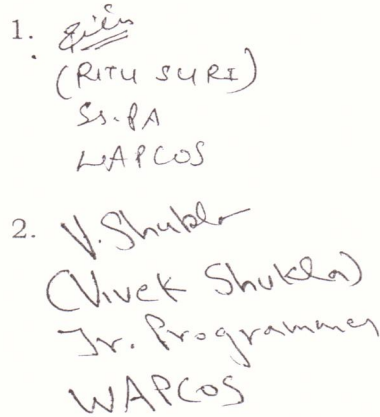 1.
(RITU SURI)
Sr. PA
WAPCOS
2. V. Shukla
(Vivek Shukla)
Jr. Programmer
WAPCOS